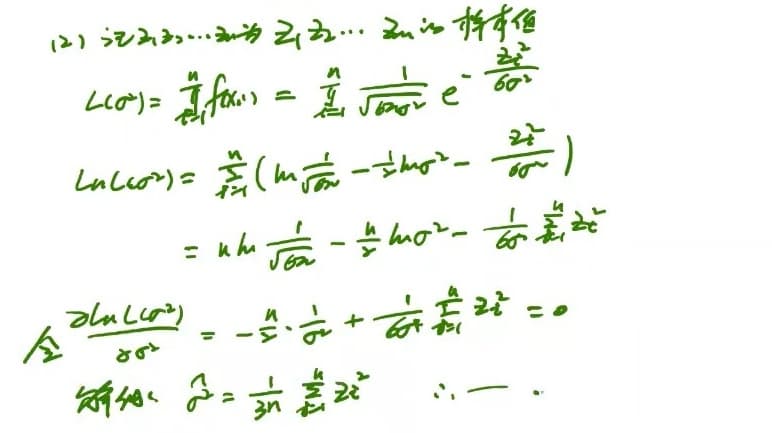 (2) 记z₁z₂…zₙ为 Z₁Z₂…Zₙ的样本值
L(σ²) = ∏ᵢ₌₁ⁿ f(xᵢ) = ∏ᵢ₌₁ⁿ 1/√(6πσ²) e^(-zᵢ²/6σ²)
ln L(σ²) = ∑ᵢ₌₁ⁿ (ln 1/√(6π) - 1/2 lnσ² - zᵢ²/6σ²)
= n ln 1/√(6π) - n/2 lnσ² - 1/6σ² ∑ᵢ₌₁ⁿ zᵢ²
令 ∂ln L(σ²)/∂σ² = -n/2 · 1/σ² + 1/6σ⁴ ∑ᵢ₌₁ⁿ zᵢ² = 0
解得 σ̂² = 1/3n ∑ᵢ₌₁ⁿ zᵢ² ∴ — .